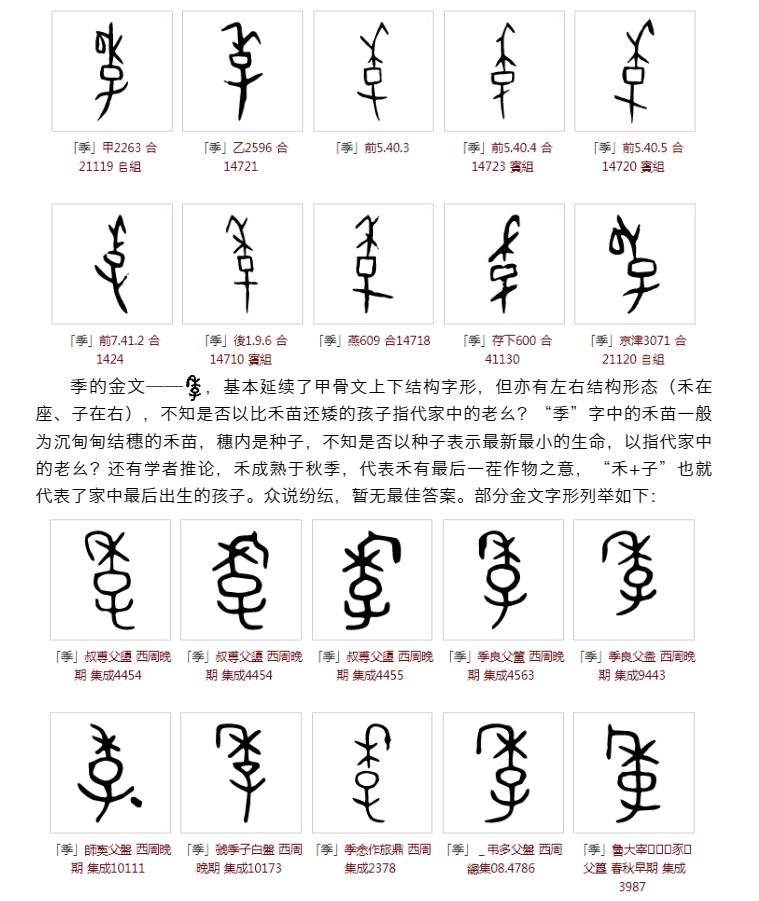 「季」甲2263 合 「季」乙2596 合 「季」前5.40.3 「季」前5.40.4 合 「季」前5.40.5 合
21119 𠂤組 14721 14723 賓組 14720 賓組
「季」前7.41.2 合 「季」後1.9.6 合 「季」燕609 合14718 「季」存下600 合 「季」京津3071 合
1424 14710 賓組 41130 21120 𠂤組
季的金文——，基本延续了甲骨文上下结构字形，但亦有左右结构形态（禾在
座、子在右），不知是否以比禾苗还矮的孩子指代家中的老幺？“季”字中的禾苗一般
为沉甸甸结穗的禾苗，穗内是种子，不知是否以种子表示最新最小的生命，以指代家中
的老幺？还有学者推论，禾成熟于秋季，代表禾有最后一茬作物之意，“禾+子”也就
代表了家中最后出生的孩子。众说纷纭，暂无最佳答案。部分金文字形列举如下：
「季」叔專父盨 西周晚 「季」叔專父盨 西周晚 「季」叔專父盨 西周晚 「季」季良父簠 西周晚 「季」季良父盉 西周晚
期 集成4454 期 集成4454 期 集成4455 期 集成4563 期 集成9443
「季」師父盤 西周晚 「季」虢季子白盤 西周 「季」季悆作旅鼎 西周 「季」_弔多父盤 西周 「季」魯大宰□□□豕□
期 集成10111 晚期 集成10173 集成2378 總集08.4786 父簋 春秋早期 集成
3987